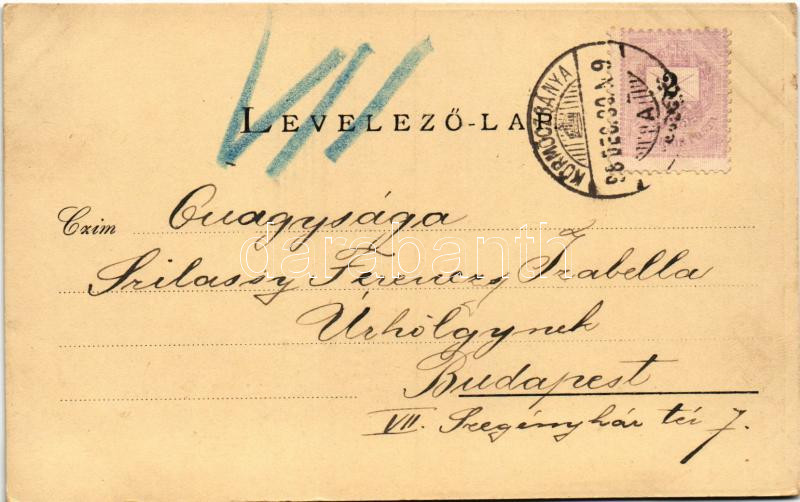 VII
LEVELEZŐ-LAP
KÖRMÖCZBÁNYA
98 DEC. 30 N. 9
Czim Ônagysága
darabanth
Szilassy Ferenczy Izabella
Úrhölgynek
Budapest
VII. Szegényház tér 7.